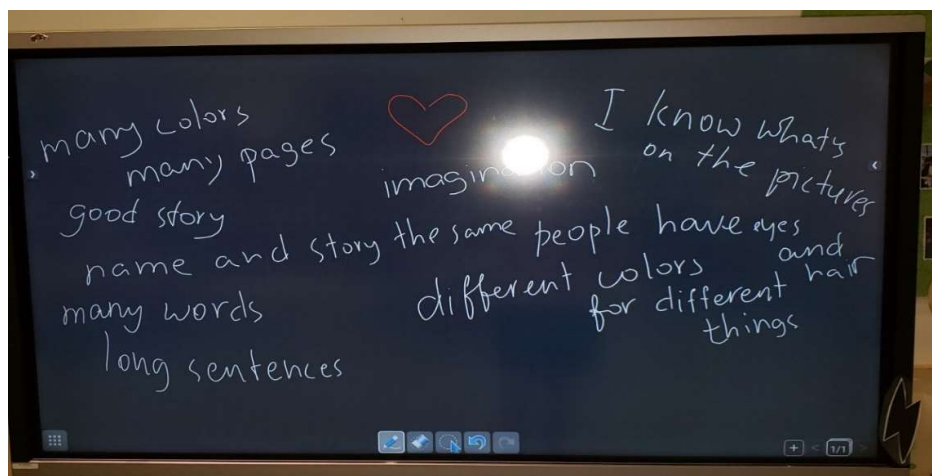 many colors
many pages
good story
name and story the same
many words
long sentences
imagination
I know what's
on the pictures
people have eyes
and
hair
different colors
for different
things
1/1